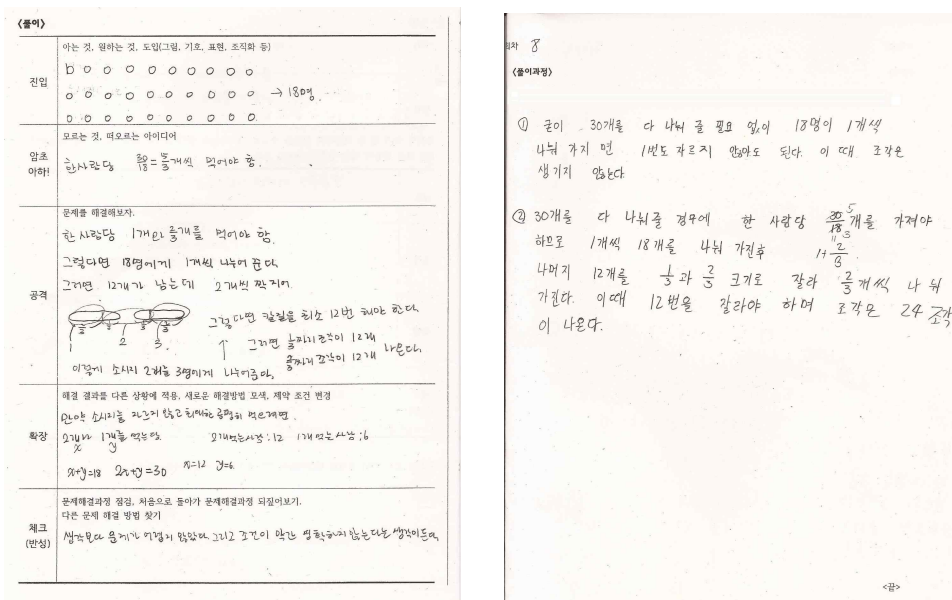 <풀이>
진입
아는 것, 원하는 것, 도입(그림, 기호, 표현, 조직화 등)
→ 18명.
암초
아하!
모르는 것, 떠오르는 아이디어
한사람당 30/18=5/3개씩 먹어야 함.
공격
문제를 해결해보자.
한 사람당 1개와 2/3개를 먹어야 함.
그렇다면 18명에게 1개씩 나누어 준다.
그러면 12개가 남는데 2개씩 짝지어
1 2 3
그렇다면 칼질을 최소 12번 해야 한다.
그러면 1/3짜리 조각이 12개
2/3짜리 조각이 12개 나온다.
이렇게 소시지 2개를 3명에게 나누어준다.
확장
해결 결과를 다른 상황에 적용, 새로운 해결방법 모색, 제약 조건 변경
만약 소시지를 자르지 않고 최대한 공평히 먹으려면.
2개 1개를 먹는
x y
2개먹는사람:12 1개먹는사람:6
x+y=18 2x+y=30 x=12 y=6
체크
(반성)
문제해결과정 점검, 처음으로 돌아가 문제해결과정 되짚어보기,
다른 문제 해결 방법 찾기
생각보다 문제가 어렵지 않았다. 그리고 조건이 약간 명확하지 않는다는 생각이든다.
회차 8
<풀이과정>
① 굳이 30개를 다 나눠 줄 필요 없이 18명이 1개씩
나눠 가지면 1번도 자르지 않아도 된다. 이 때 조각은
생기지 않는다.
② 30개를 다 나눠줄 경우에 한 사람당 30/18 5/3개를 가져야
하므로 1개씩 18개를 나눠 가진후 1+2/3
나머지 12개를 1/3과 2/3 크기로 잘라 2/3개씩 나눠
가진다. 이때 12번을 잘라야 하며 조각은 24조각
이 나온다.
<끝>